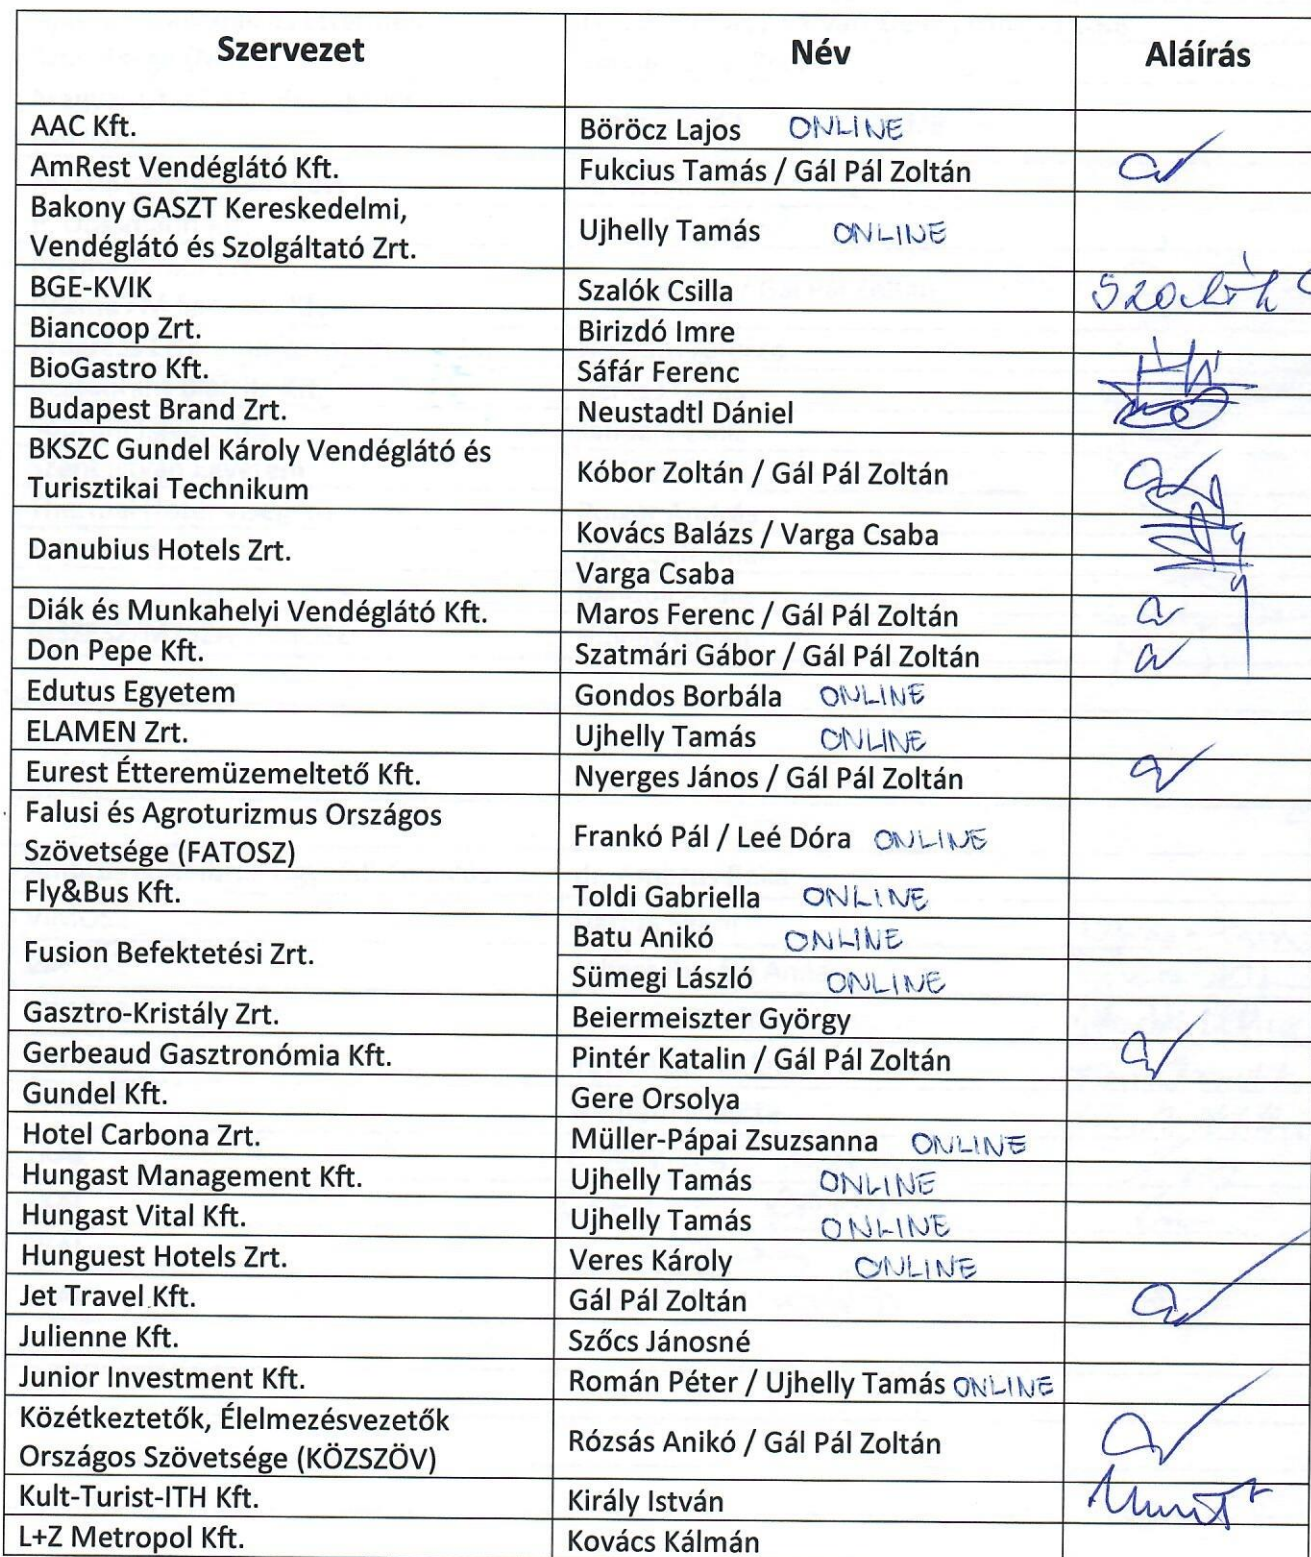 Szervezet Név Aláírás
AAC Kft. Böröcz Lajos ONLINE
AmRest Vendéglátó Kft. Fukcius Tamás / Gál Pál Zoltán
Bakony GASZT Kereskedelmi,
Vendéglátó és Szolgáltató Zrt. Ujhelly Tamás ONLINE
BGE-KVIK Szalók Csilla
Biancoop Zrt. Birizdó Imre
BioGastro Kft. Sáfár Ferenc
Budapest Brand Zrt. Neustadtl Dániel
BKSZC Gundel Károly Vendéglátó és
Turisztikai Technikum Kóbor Zoltán / Gál Pál Zoltán
Danubius Hotels Zrt. Kovács Balázs / Varga Csaba
Varga Csaba
Diák és Munkahelyi Vendéglátó Kft. Maros Ferenc / Gál Pál Zoltán
Don Pepe Kft. Szatmári Gábor / Gál Pál Zoltán
Edutus Egyetem Gondos Borbála ONLINE
ELAMEN Zrt. Ujhelly Tamás ONLINE
Eurest Étteremüzemeltető Kft. Nyerges János / Gál Pál Zoltán
Falusi és Agroturizmus Országos
Szövetsége (FATOSZ) Frankó Pál / Leé Dóra ONLINE
Fly&Bus Kft. Toldi Gabriella ONLINE
Fusion Befektetési Zrt. Batu Anikó ONLINE
Sümegi László ONLINE
Gasztro-Kristály Zrt. Beiermeiszter György
Gerbeaud Gasztronómia Kft. Pintér Katalin / Gál Pál Zoltán
Gundel Kft. Gere Orsolya
Hotel Carbona Zrt. Müller-Pápai Zsuzsanna ONLINE
Hungast Management Kft. Ujhelly Tamás ONLINE
Hungast Vital Kft. Ujhelly Tamás ONLINE
Hunguest Hotels Zrt. Veres Károly ONLINE
Jet Travel Kft. Gál Pál Zoltán
Julienne Kft. Szőcs Jánosné
Junior Investment Kft. Román Péter / Ujhelly Tamás ONLINE
Közétkeztetők, Élelmezésvezetők
Országos Szövetsége (KÖZSZÖV) Rózsás Anikó / Gál Pál Zoltán
Kult-Turist-ITH Kft. Király István
L+Z Metropol Kft. Kovács Kálmán